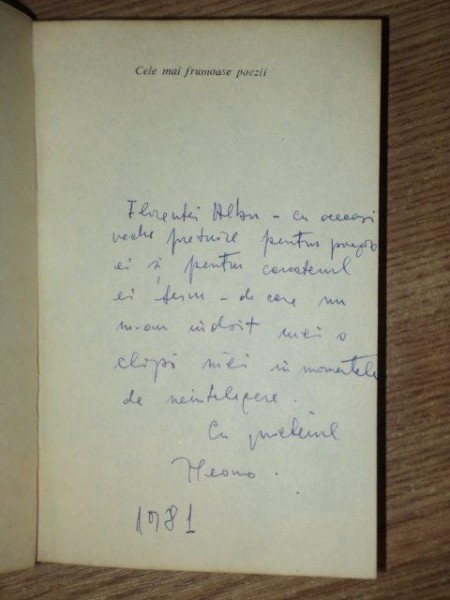 Cele mai frumoase poezii
Florenței Albu – cu aceeași
veche prețuire pentru poezia
ei și pentru caracterul
ei ferm – de care nu
m-am îndoit nici o
clipă nici în momentele
de neînțelegere.
Cu prietenie
1981